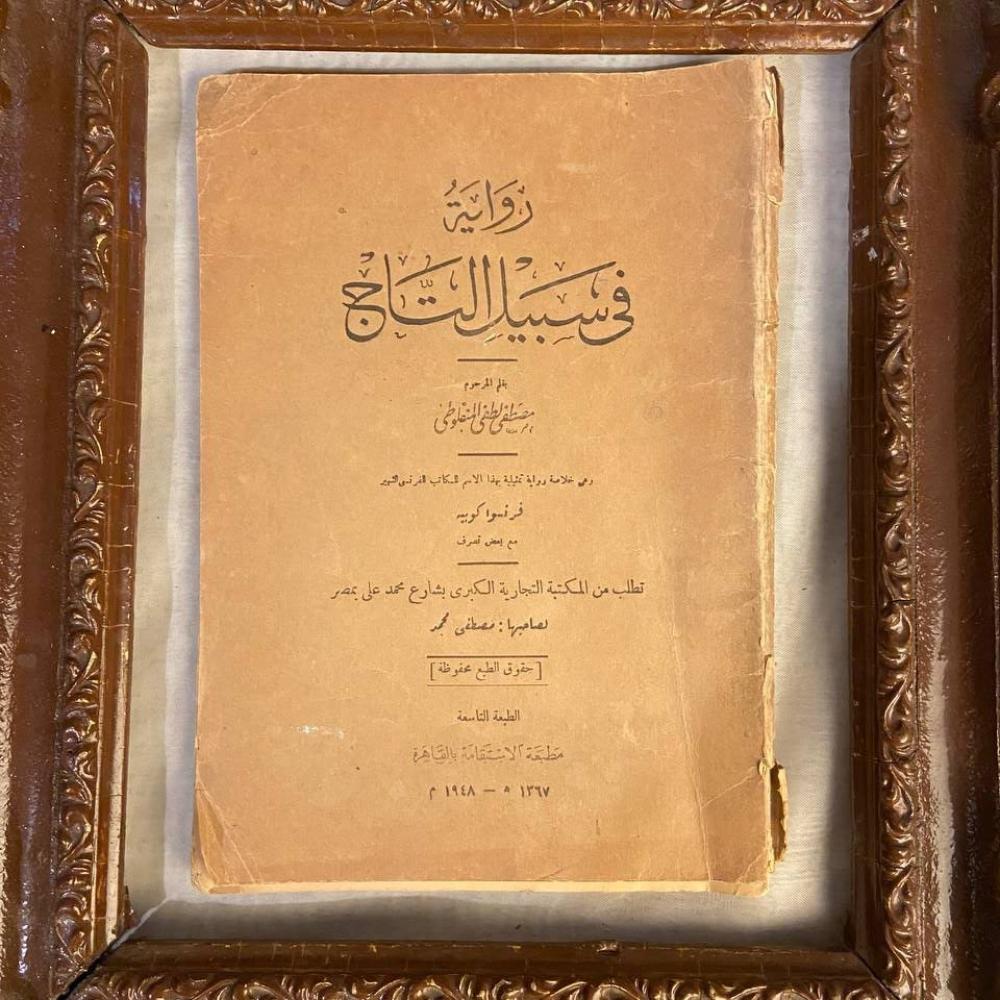 رِوَايَةُ
فى سَبِيْلِ التَّاج
بقلم المرحوم
مصطفى لطفى المنفلوطى
وهى خلاصة رواية تمثيلية بهذا الاسم للكاتب الفرنسى الشهير
فرنسوا كوبيه
مع بعض تصرف
تطلب من المكتبة التجارية الكبرى بشارع محمد على بمصر
لصاحبها : مصطفى محمد
[ حقوق الطبع محفوظة ]
الطبعة التاسعة
مطبعة الاستقامة بالقاهرة
١٣٦٧ ه – ١٩٤٨ م